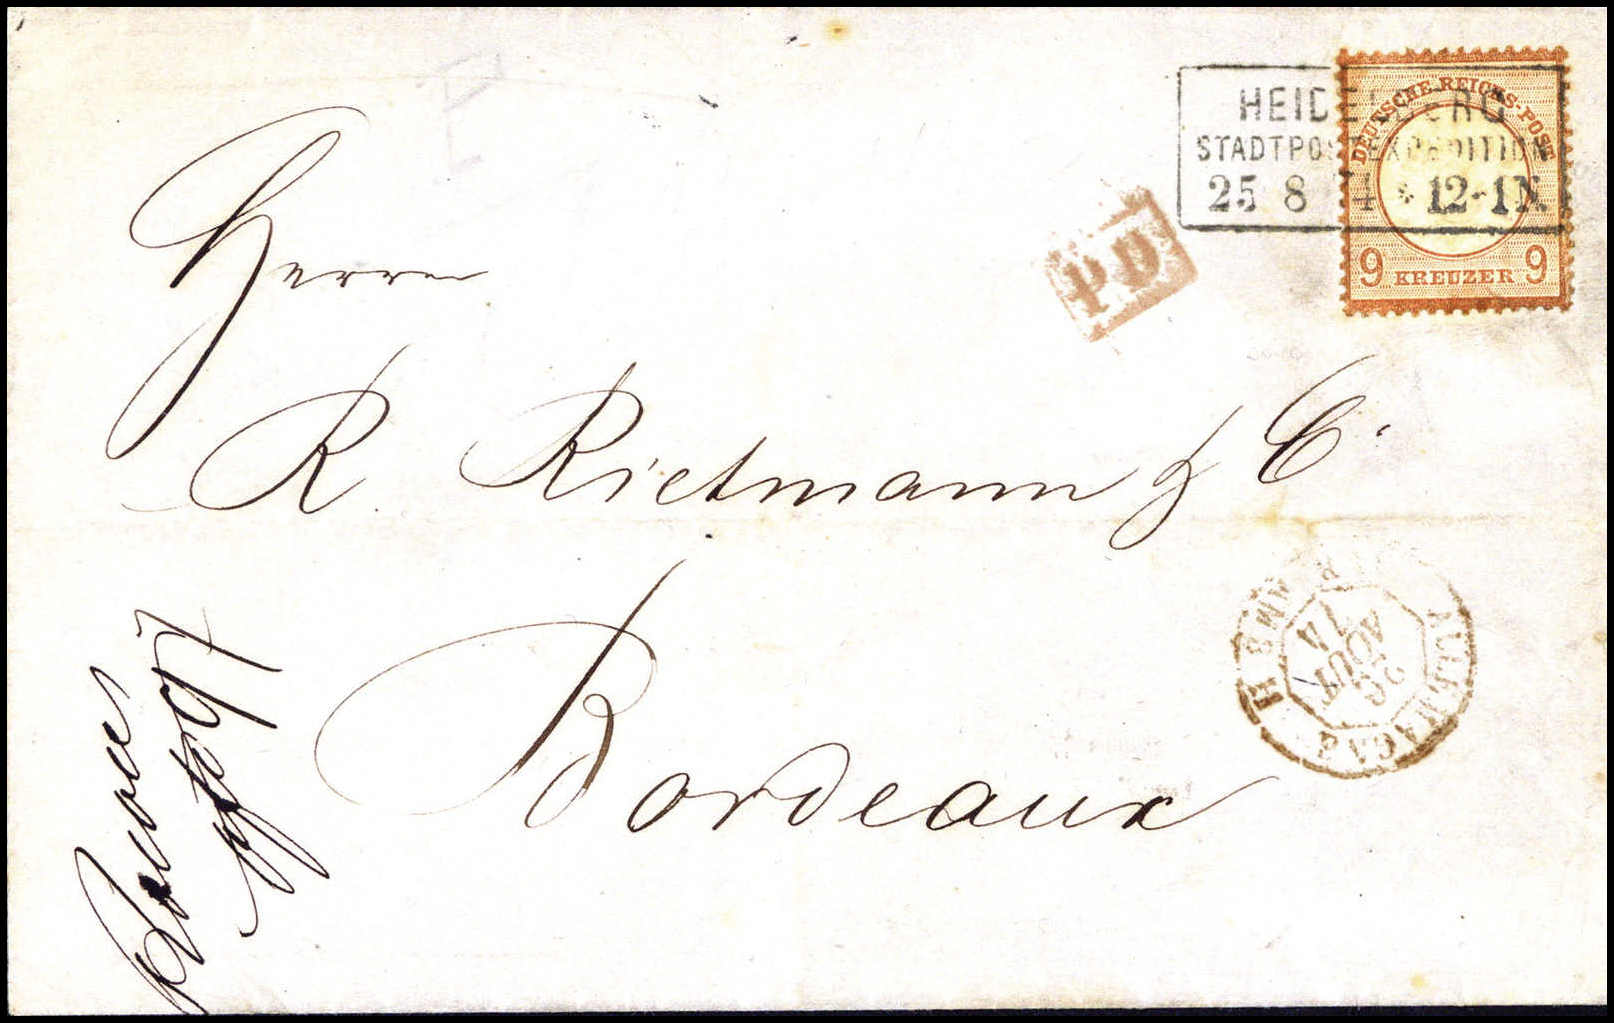 HEIDELBERG
STADTPOSTEXPEDITION
25 8 74 * 12-1 N.
DEUTSCHE REICHS-POST
9 KREUZER 9
PD
Herrn
R Rietmann & Co
Bordeaux
26
AOUT
74